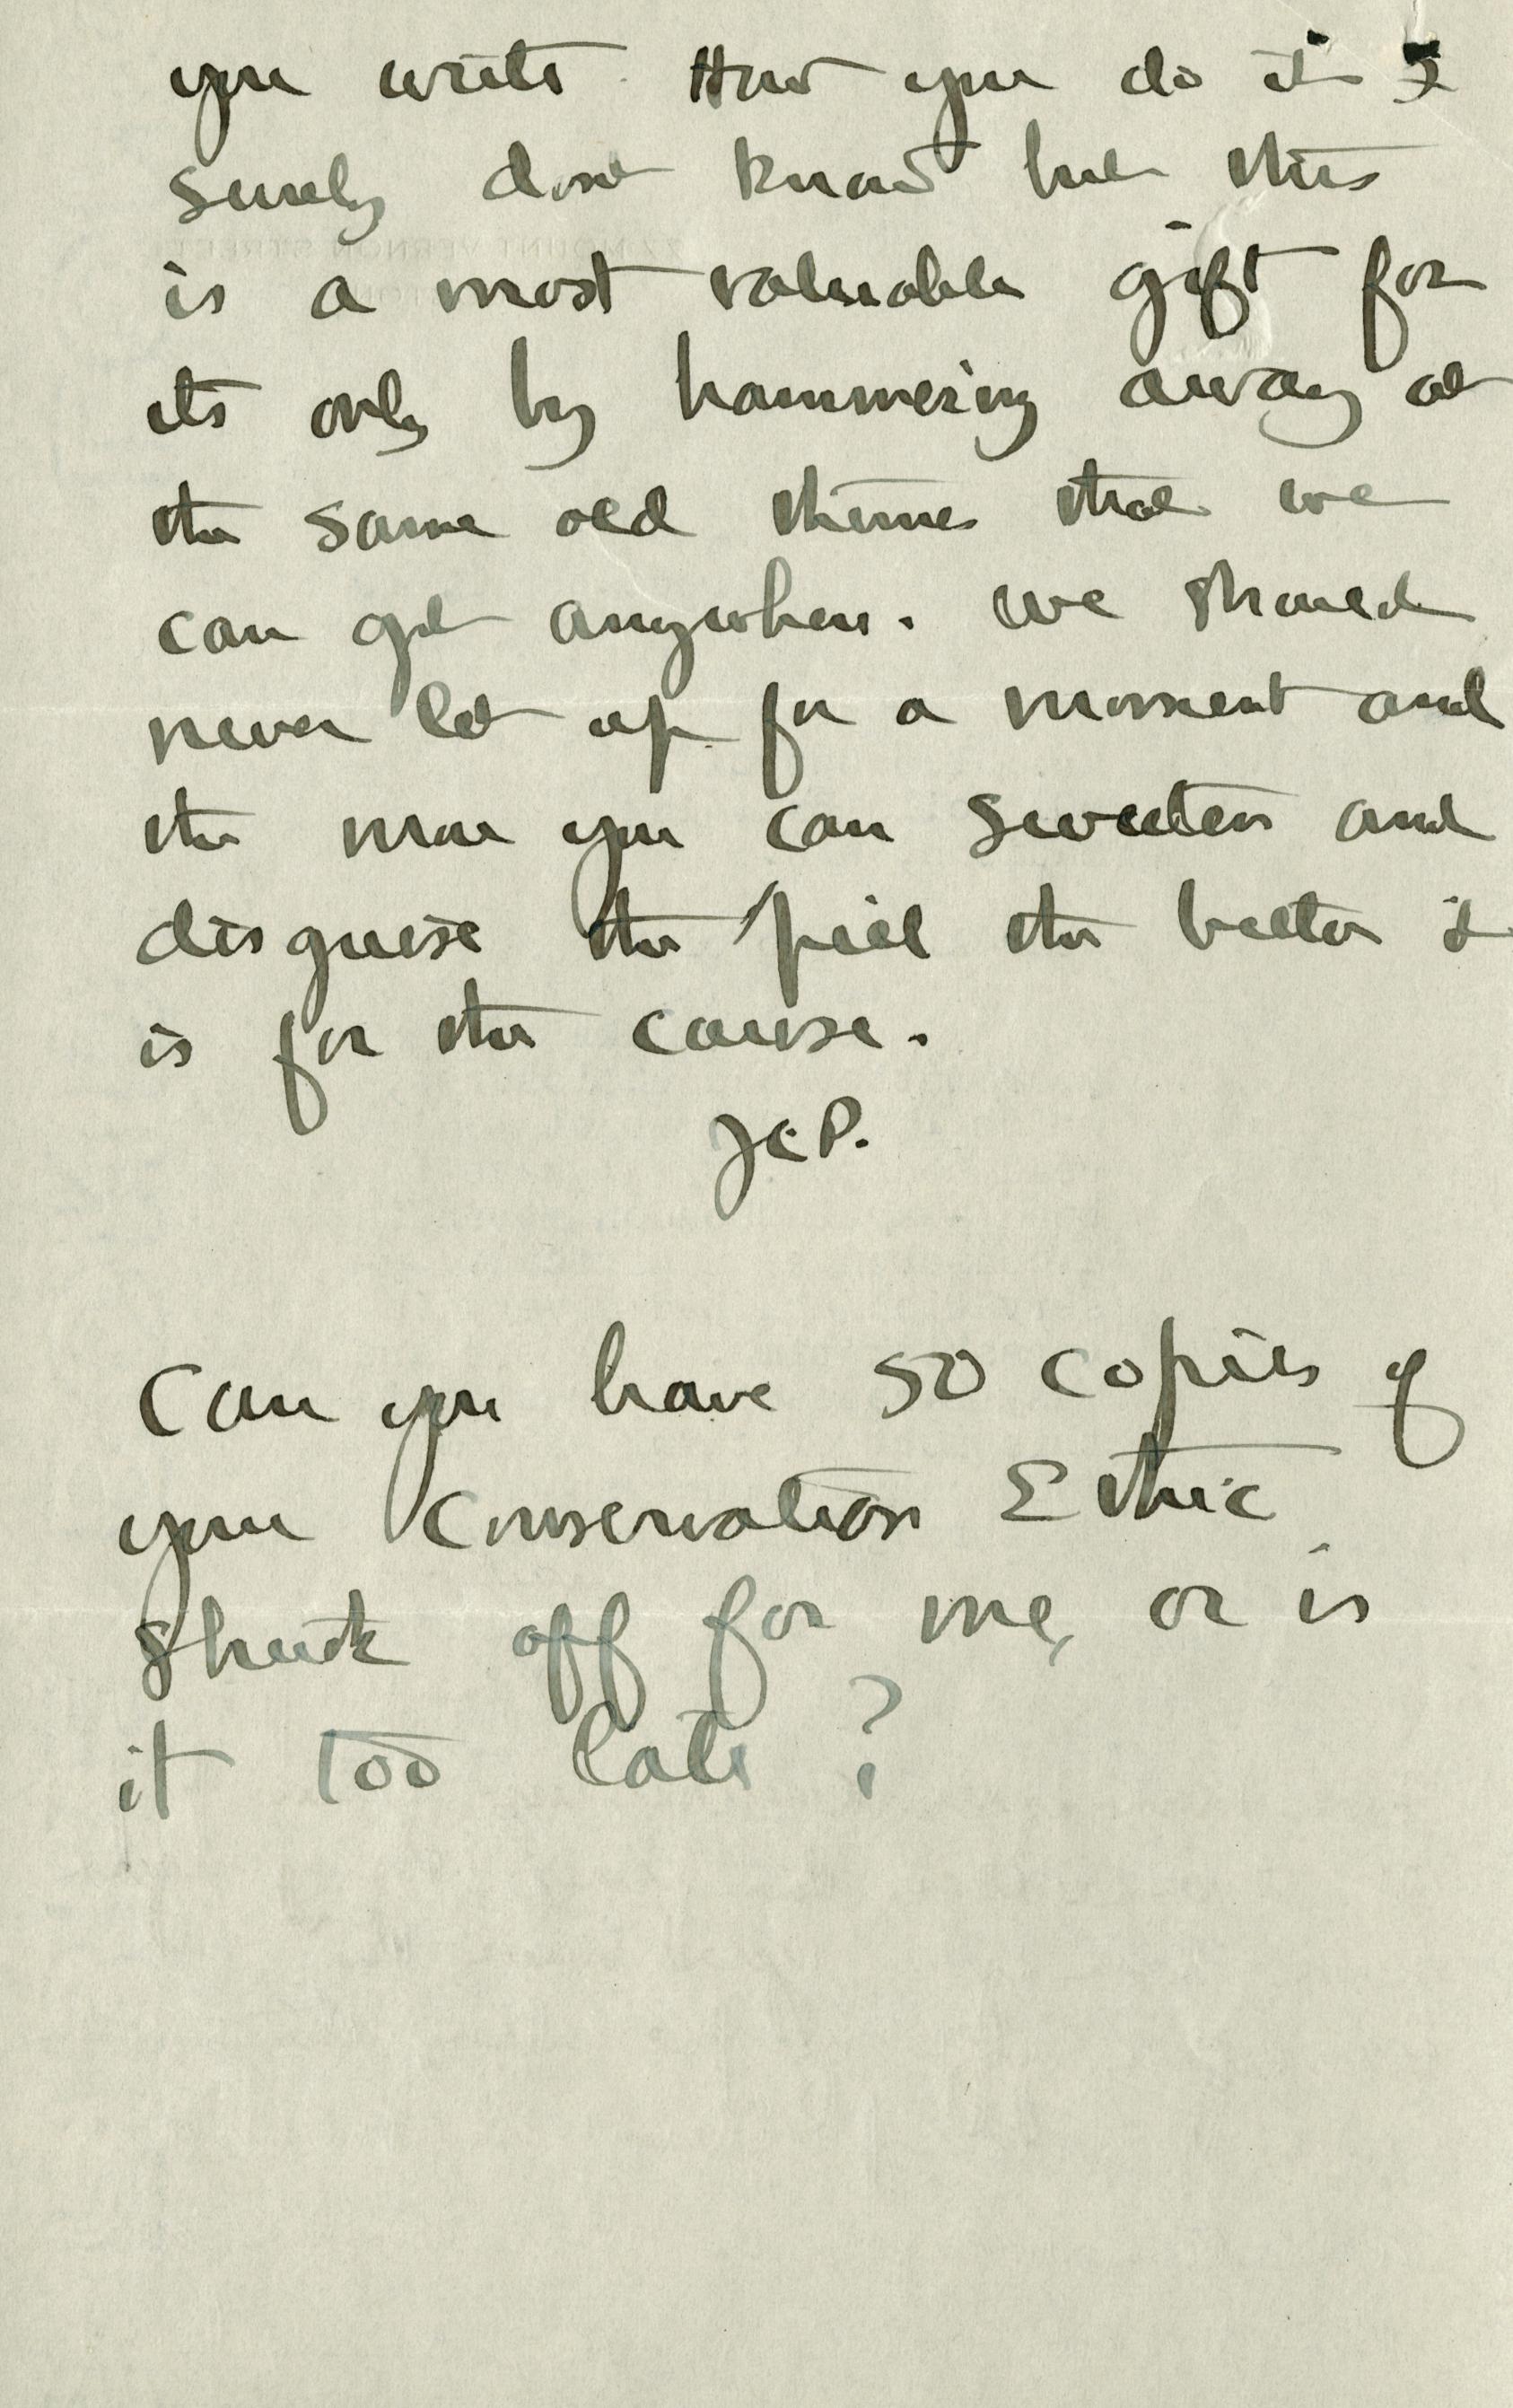 you write. How you do it I
surely dont know but this
is a most valuable gift for
its only by hammering away at
the same old themes that we
can get anywhere. We should
never let up for a moment and
the more you can sweeten and
disguise the pill the better it
is for the cause.
JCP.
Can you have 50 copies of
your Conservation Ethic
struck off for me, or is
it too late?